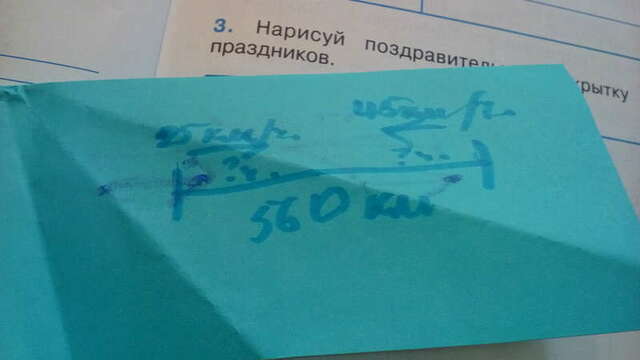 3. Нарисуй поздравитель крытку
праздников.
45км/ч.
?ч.
?ч.
560 км